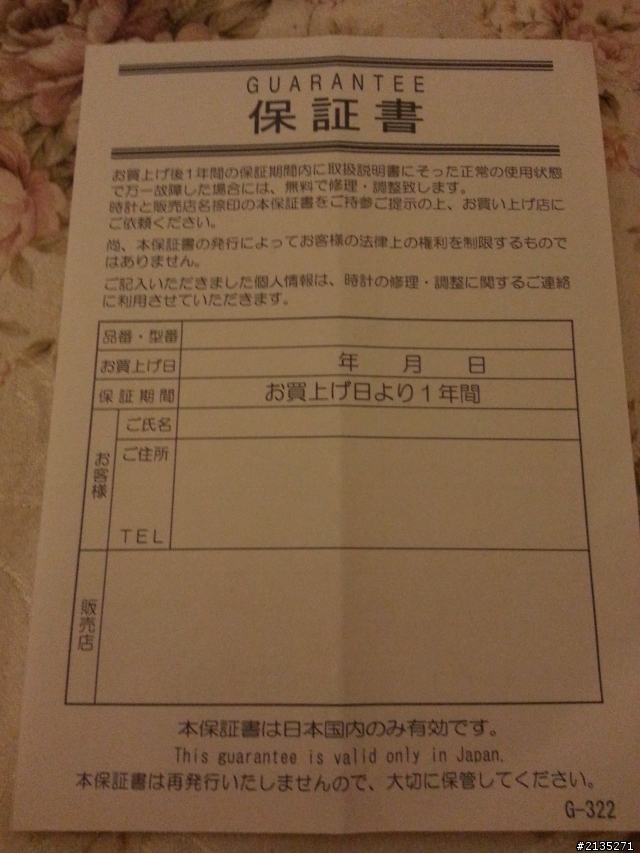 GUARANTEE
保証書
お買上げ後1年間の保証期間内に取扱説明書にそった正常の使用状態
で万一故障した場合には、無料で修理・調整致します。
時計と販売店名捺印の本保証書をご持参ご提示の上、お買い上げ店に
ご依頼ください。
尚、本保証書の発行によってお客様の法律上の権利を制限するもので
はありません。
ご記入いただきました個人情報は、時計の修理・調整に関するご連絡
に利用させていただきます。
品番・型番
お買上げ日 年 月 日
保証期間 お買上げ日より1年間
お客様
ご氏名
ご住所
TEL
販売店
本保証書は日本国内のみ有効です。
This guarantee is valid only in Japan.
本保証書は再発行いたしませんので、大切に保管してください。
G-322
#2135271